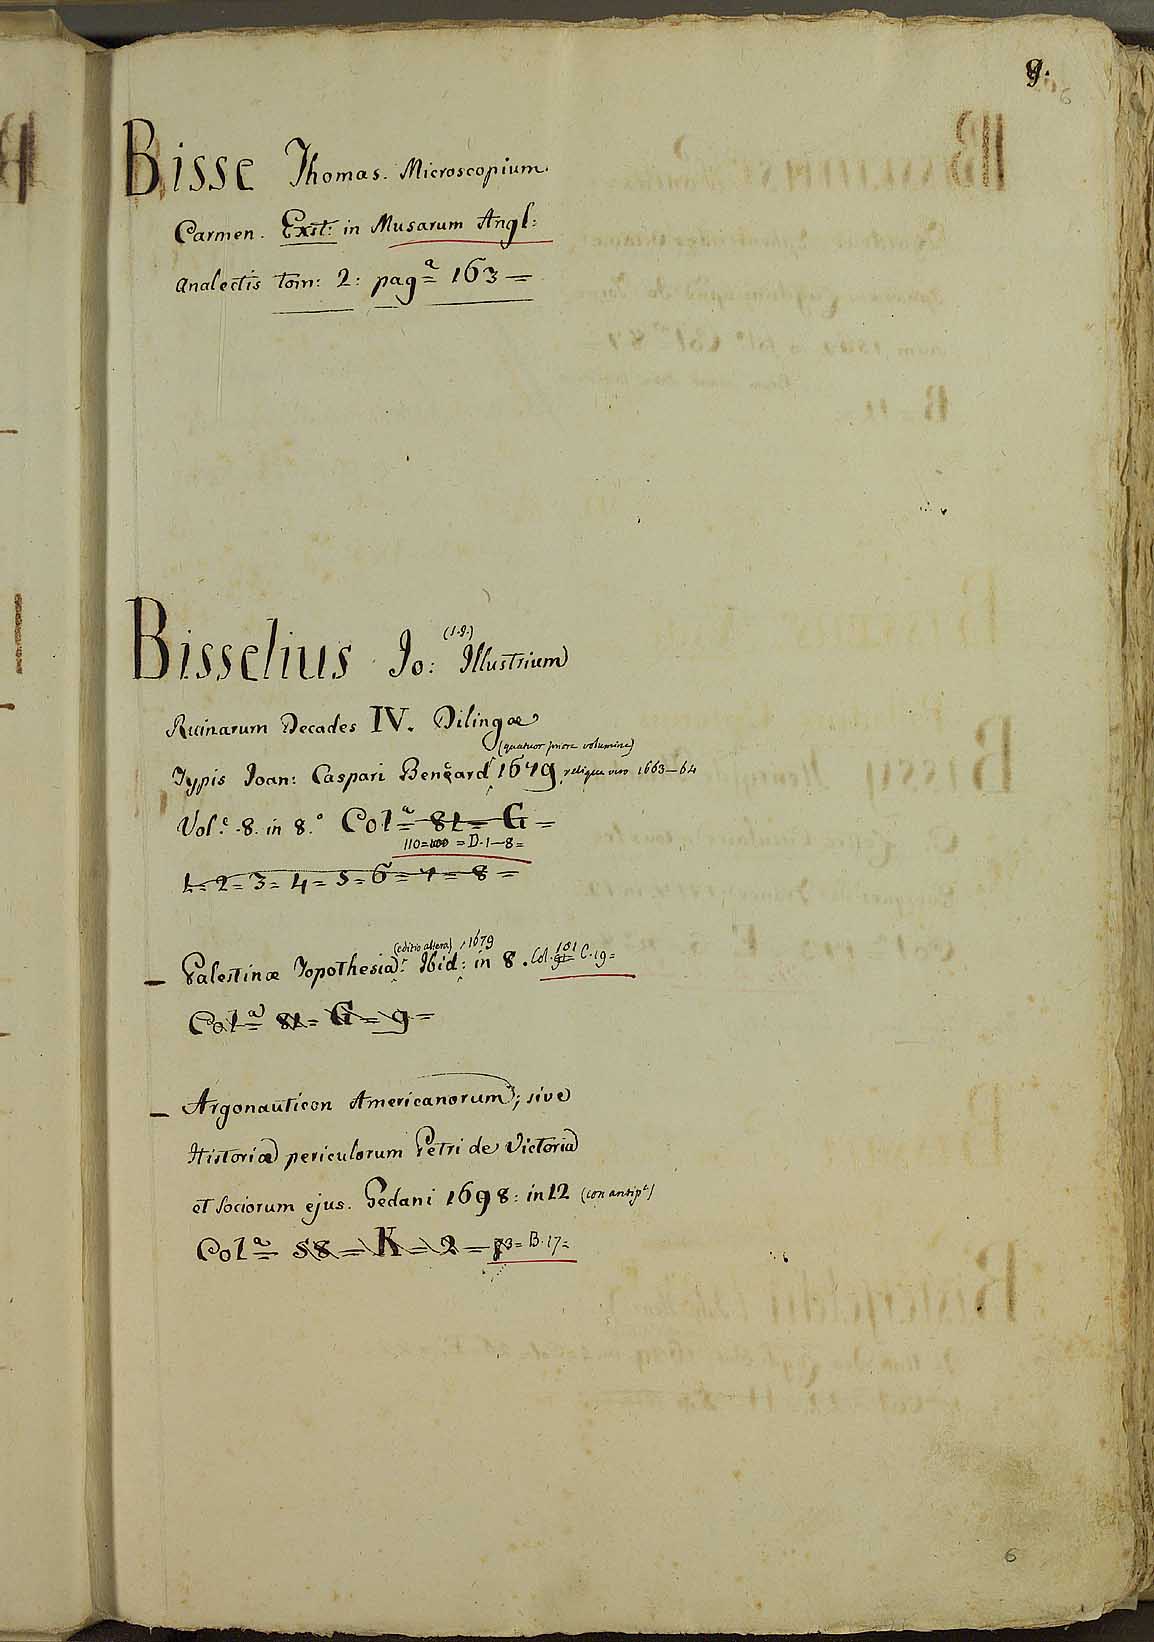 9.
6
Bisse Thomas. Microscopium.
Carmen. Exst: in Musarum Angl:
Analectis tom: 2: pagª= 163=
Bisselius Io: (S.J.) Illustrium
Ruinarum Decades IV. Dilingæ
(quatuor priora volumina)
Typis Joan: Caspari Bencard 1679, reliqua vero 1663-64
Vol.e 8. in 8.º Colª= 81= G=
110= = D.1-8=
1=2=3=4=5=6=7=8=
(editio altera) 1679
- Palestinæ Topothesia: Ibid: in 8. Col. 101 C.19=
Colª= 81= G= 9=
- Argonauticon Americanorum; sive
Historiæ periculorum Petri de Victoria
et sociorum ejus. Gedani 1698: in 12 (con antip.ª)
Colª= 58= K= 2= 3= B.17=
6